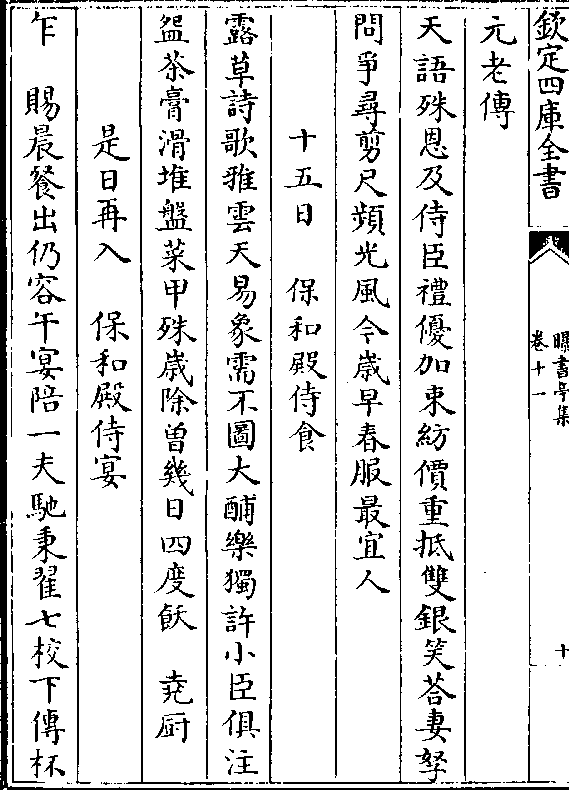 欽定四庫全書
曝書亭集
卷十一
十
元老傳
天語殊恩及侍臣禮優加束紡價重抵雙銀笑荅妻孥
問爭尋剪尺頻光風今歳早春服最宜人
十五日 保和殿侍食
露草詩歌雅雲天易象需不圖大酺樂獨許小臣俱注
盌茶膏滑堆盤菜甲殊歳除曾幾日四度飫 堯厨
是日再入 保和殿侍宴
乍 賜晨餐出仍容午宴陪一夫馳秉翟七校下傳杯